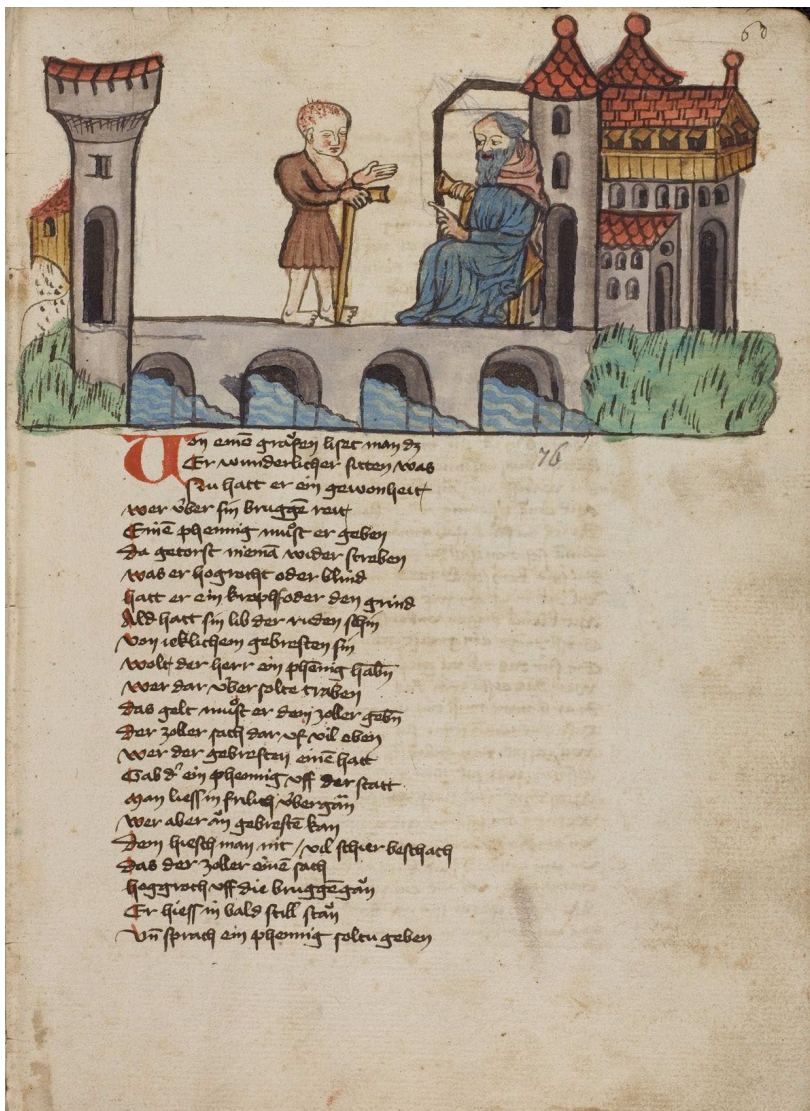 60
Von eineē grǎfen liset man dz
Er wunderlicher sitten was
Nu hatt er ein gewonheit
wer v̆ber sin bruggē reit
Einē phennig mu̇st er geben
Da getorst niemā wider streben
was er hogrocht oder blind
hatt er ein kroph oder den grind
Ald hatt sin lib der ruden schin
von ieklichem gebresten sin
wolt der herr ein phēnig habn̄
wer dar v̆ber solte traben
das gelt mu̇st er dem zoller gebn̄
Der zoller sach dar vf vil eben
wer der gebresten einē hatt
Gab d' ein phennig vff der statt
Man liess in frilich v̆bergǎn
wer aber ǎn gebrestē kan
Dem hiesch man nit / vil schier beschach
Das der zoller einē sach
hoggroch vff die bruggē gǎn
Er hiess in bald still stǎn
vn̄ sprach ein phennig soltu geben
76